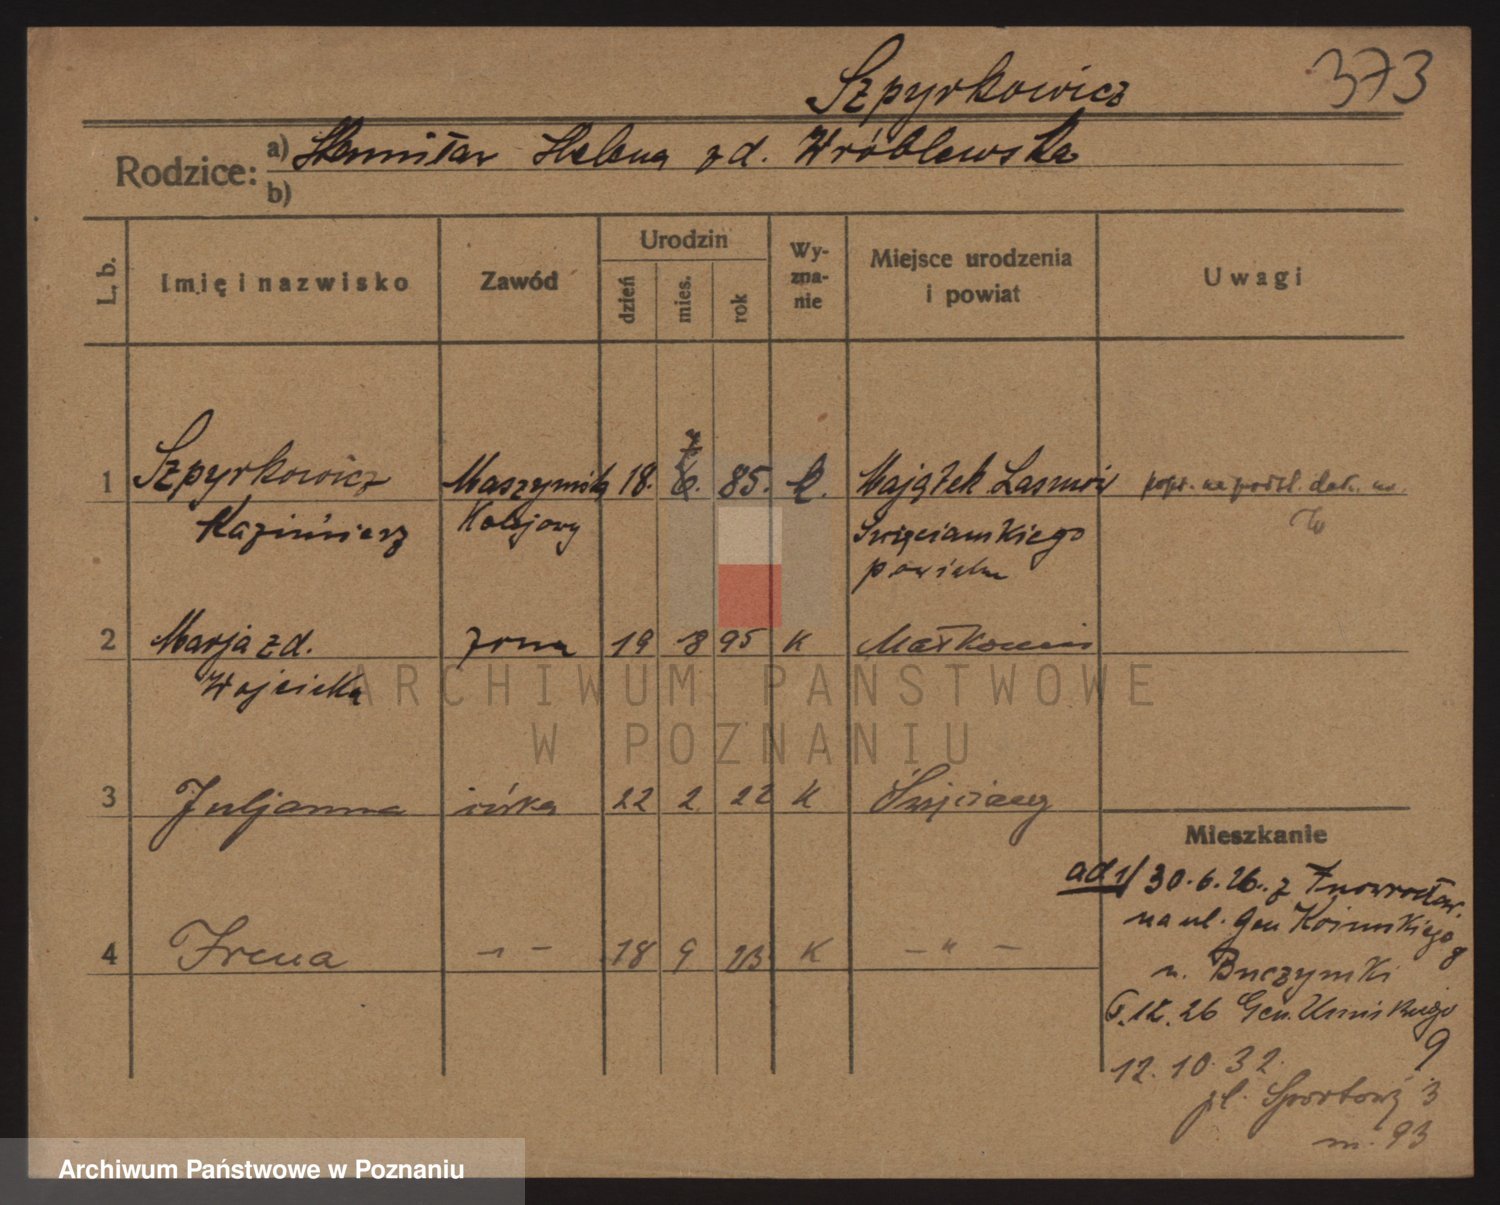 Szpyrkowicz 373
Rodzice: a) Stanisław Helena zd. Wróblewska
b)
L. b. Imię i nazwisko Zawód Urodzin dzień mies. rok Wyznanie Miejsce urodzenia i powiat Uwagi
1 Szpyrkowicz Maszynista 18. 85. k. Majątek
Kazimierz Kolejowy Święciańskiego
powiatu
2 Marja zd. żona 19 8 95 K
Wojcicka
3 Juljanna córka 22 2 22 K Święciany
4 Irena -"- 18 9 23 K -"-
Mieszkanie
ad 1/ 30.6.26. z Inowrocław.
na ul. Gen
8
u.
12.26 Gen. Umińskiego
9
12.10.32.
pl. Sportowy 3
m. 93
ARCHIWUM PAŃSTWOWE
W POZNANIU
Archiwum Państwowe w Poznaniu